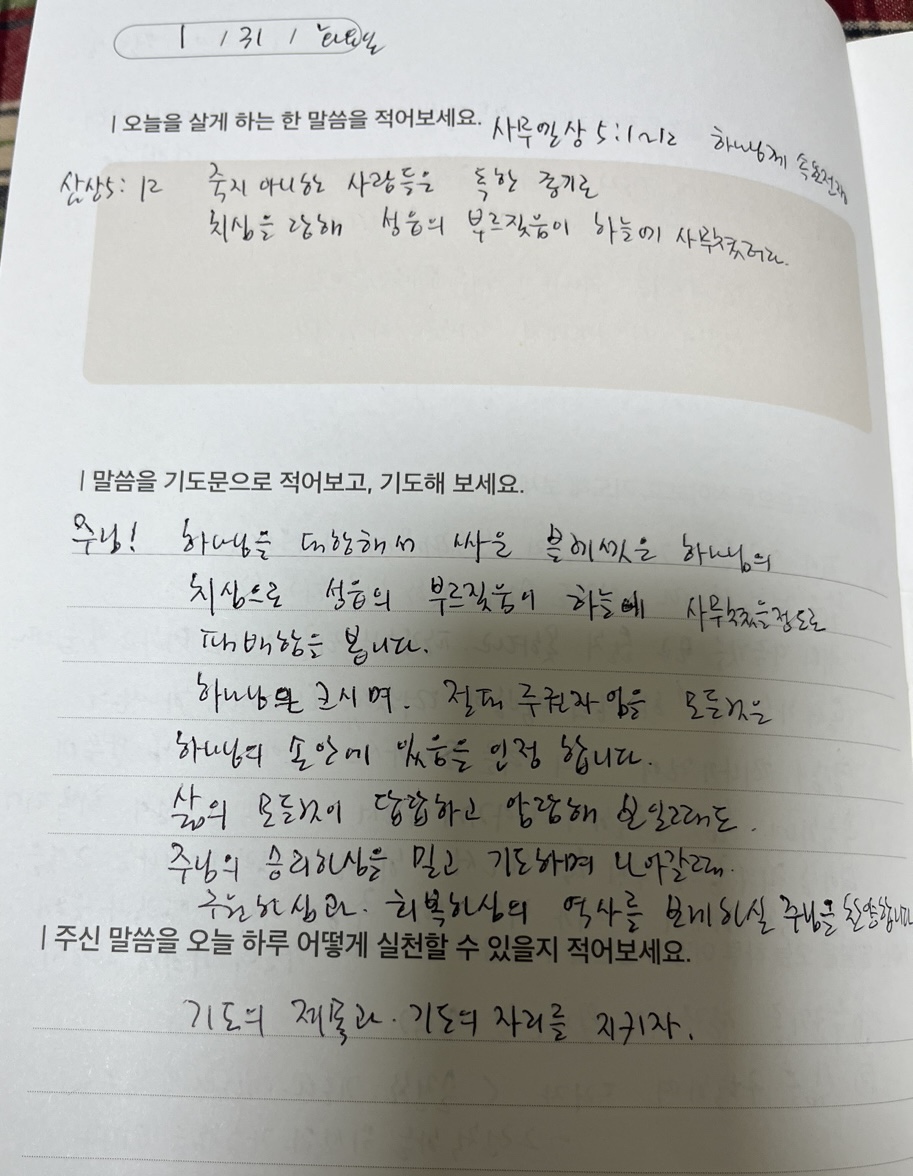 1 / 31 / 화요일
| 오늘을 살게 하는 한 말씀을 적어보세요.
사무엘상 5:1~12 하나님께
삼상5:12 죽지 아니하는 사람들은 독한 종기로
치심을 당해 성읍의 부르짖음이 하늘에 사무쳤더라.
| 말씀을 기도문으로 적어보고, 기도해 보세요.
주님! 하나님을 대항해서 싸운 블레셋은 하나님의
치심으로 성읍의 부르짖음이 하늘에 사무쳤을정도로
패배함을 봅니다.
하나님은 크시며. 절대 주권자 임을 모든것은
하나님의 손안에 있음을 인정 합니다.
삶의 모든것이 답답하고 암담해 보일때도.
주님의 승리하심을 믿고 기도하며 나아갈때.
구원하심과. 회복하심의 역사를 보게하실 주님을 찬양합니다
| 주신 말씀을 오늘 하루 어떻게 실천할 수 있을지 적어보세요.
기도의 제목과. 기도의 자리를 지키자.